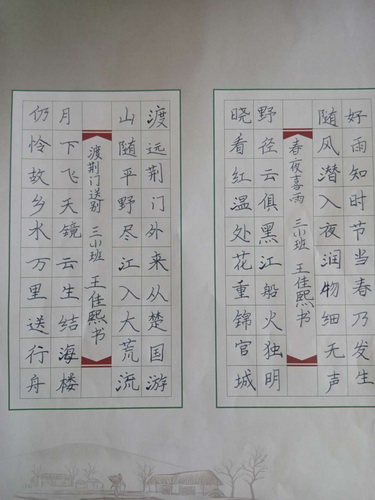 好雨知时节当春乃发生
随风潜入夜润物细无声
春夜喜雨 三小班 王佳熙书
野径云俱黑江船火独明
晓看红温处花重锦官城
渡远荆门外来从楚国游
山随平野尽江入大荒流
渡荆门送别 三小班 王佳熙书
月下飞天镜云生结海楼
仍怜故乡水万里送行舟